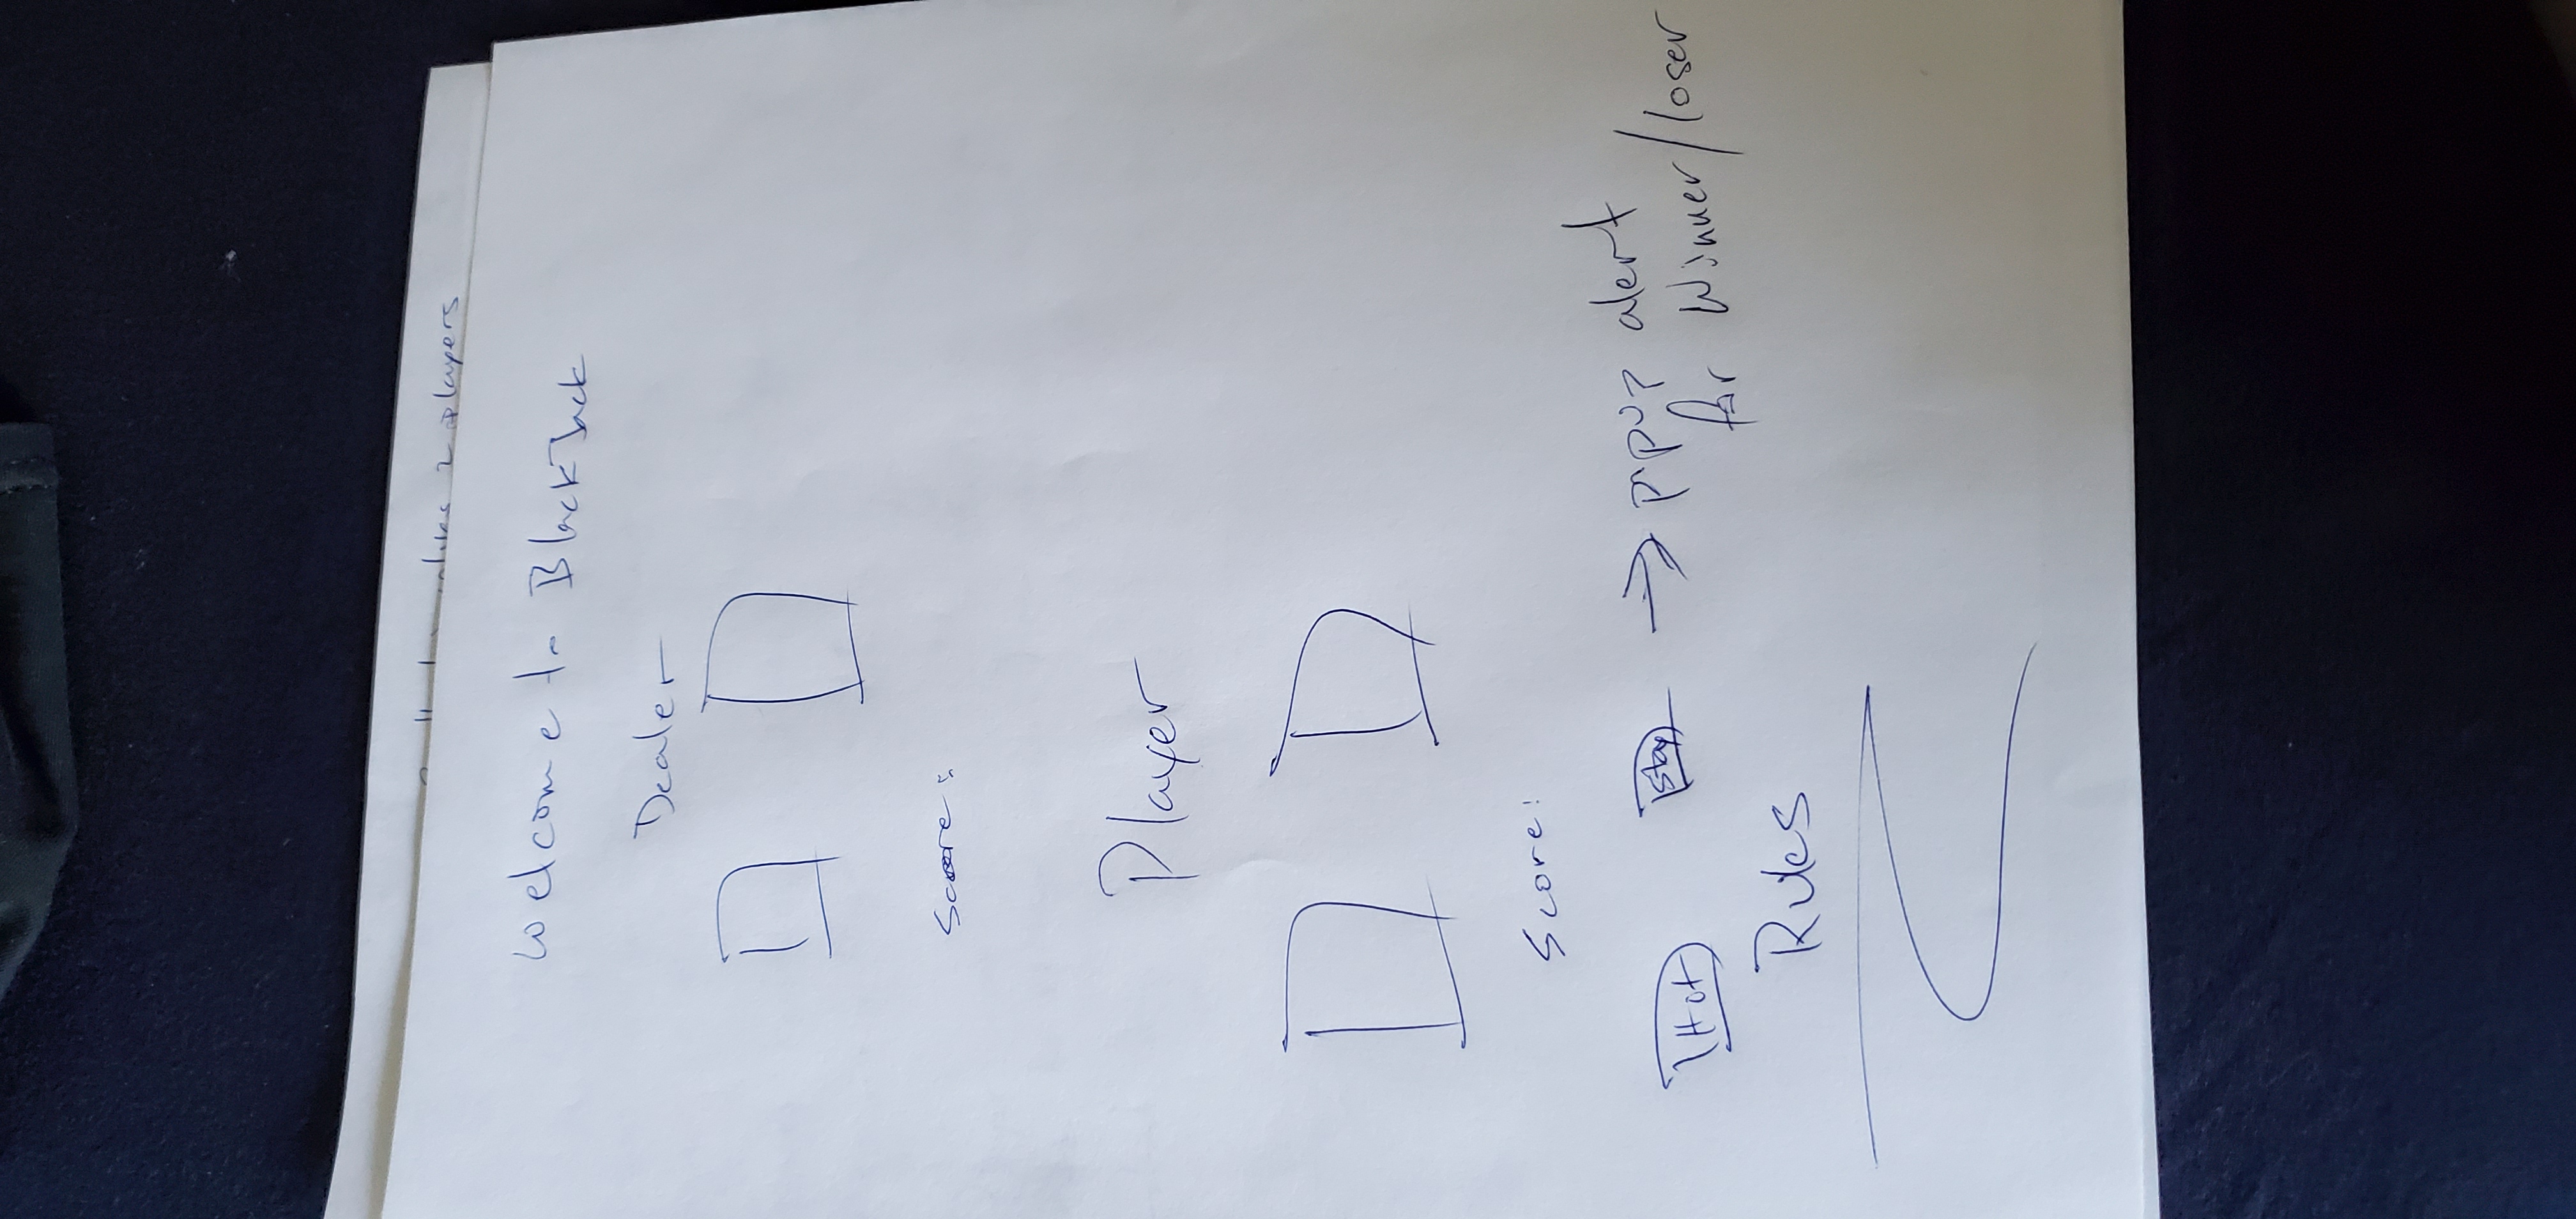 2 players
Welcome to BlackJack
Dealer
Score:
Player
Score:
Hit Stay → popup alert
for Winner/loser
Rules